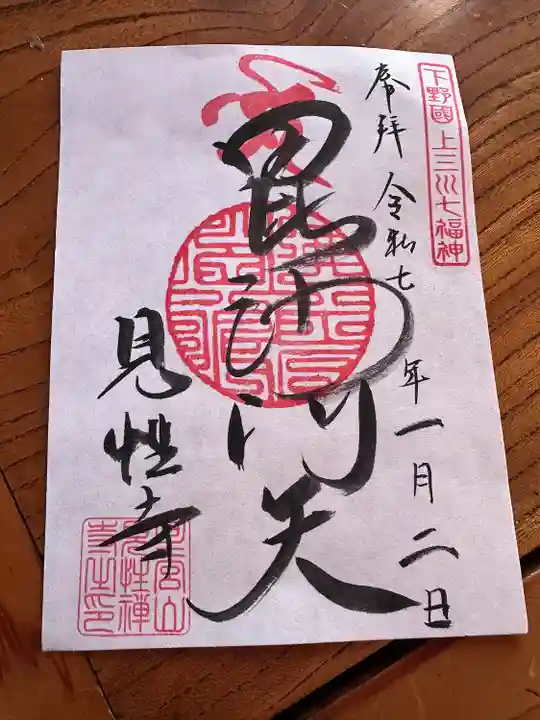 下野國 上三川七福神
奉拝 令和七年一月二日
毘沙門天
見性寺